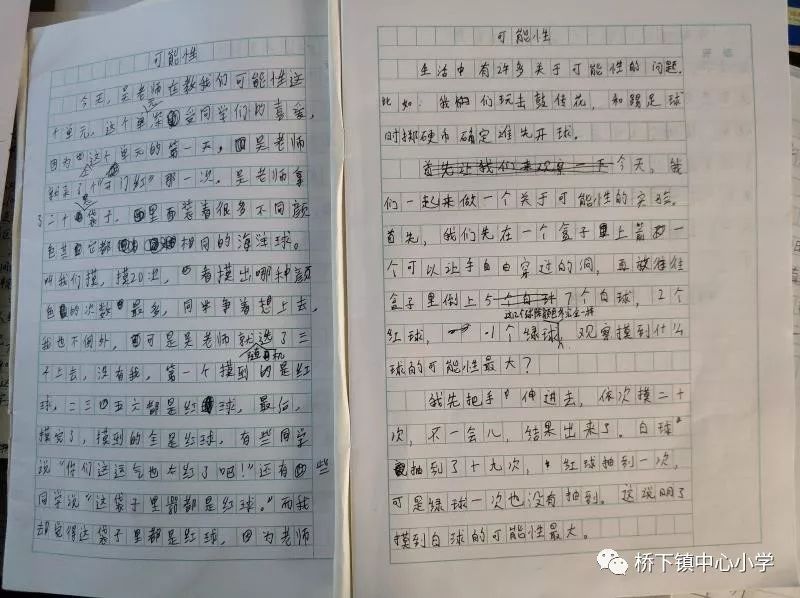 可能性
今天，吴老师在教我们可能性这
个单元，这个单受同学们的喜爱，
因为这个单元的第一天，吴老师
就来了个"开门红"那一次。吴老师拿
了二十袋子，里面装着很多不同颜
色其它都相同的海洋球。
叫我们摸，摸20次，看摸出哪种颜
色的次数最多，同学争着想上去，
我也不例外，可是吴老师就选了三
随机
个上去，没有我，第一个摸到的是红
球，二三四五六都是红球，最后，
摸完了，摸到的全是红球，有些同学
说"你们这运气也太红了吧！"还有些
同学说"这袋子里都是红球。"而我
却觉得这袋子里都是红球，因为老师
可能性
生活中有许多关于可能性的问题。
比如：我们玩击鼓传花，和踢足球
时掷硬币确定谁先开球。
首先让我们来观察一下今天，我
们一起来做一个关于可能性的实验。
首先，我们先在一个盒子上剪一
个可以让手自由穿过的洞，再往
盒子里倒上5个白球7个白球，2个
红球，1个绿球，观察摸到什么
球的可能性最大？
我先把手伸进去，依次摸二十
次，不一会儿，结果出来了。白球
抽到了十九次，红球抽到一次，
可是绿球一次也没有抽到。这说明了
摸到白球的可能性最大。
桥下镇中心小学